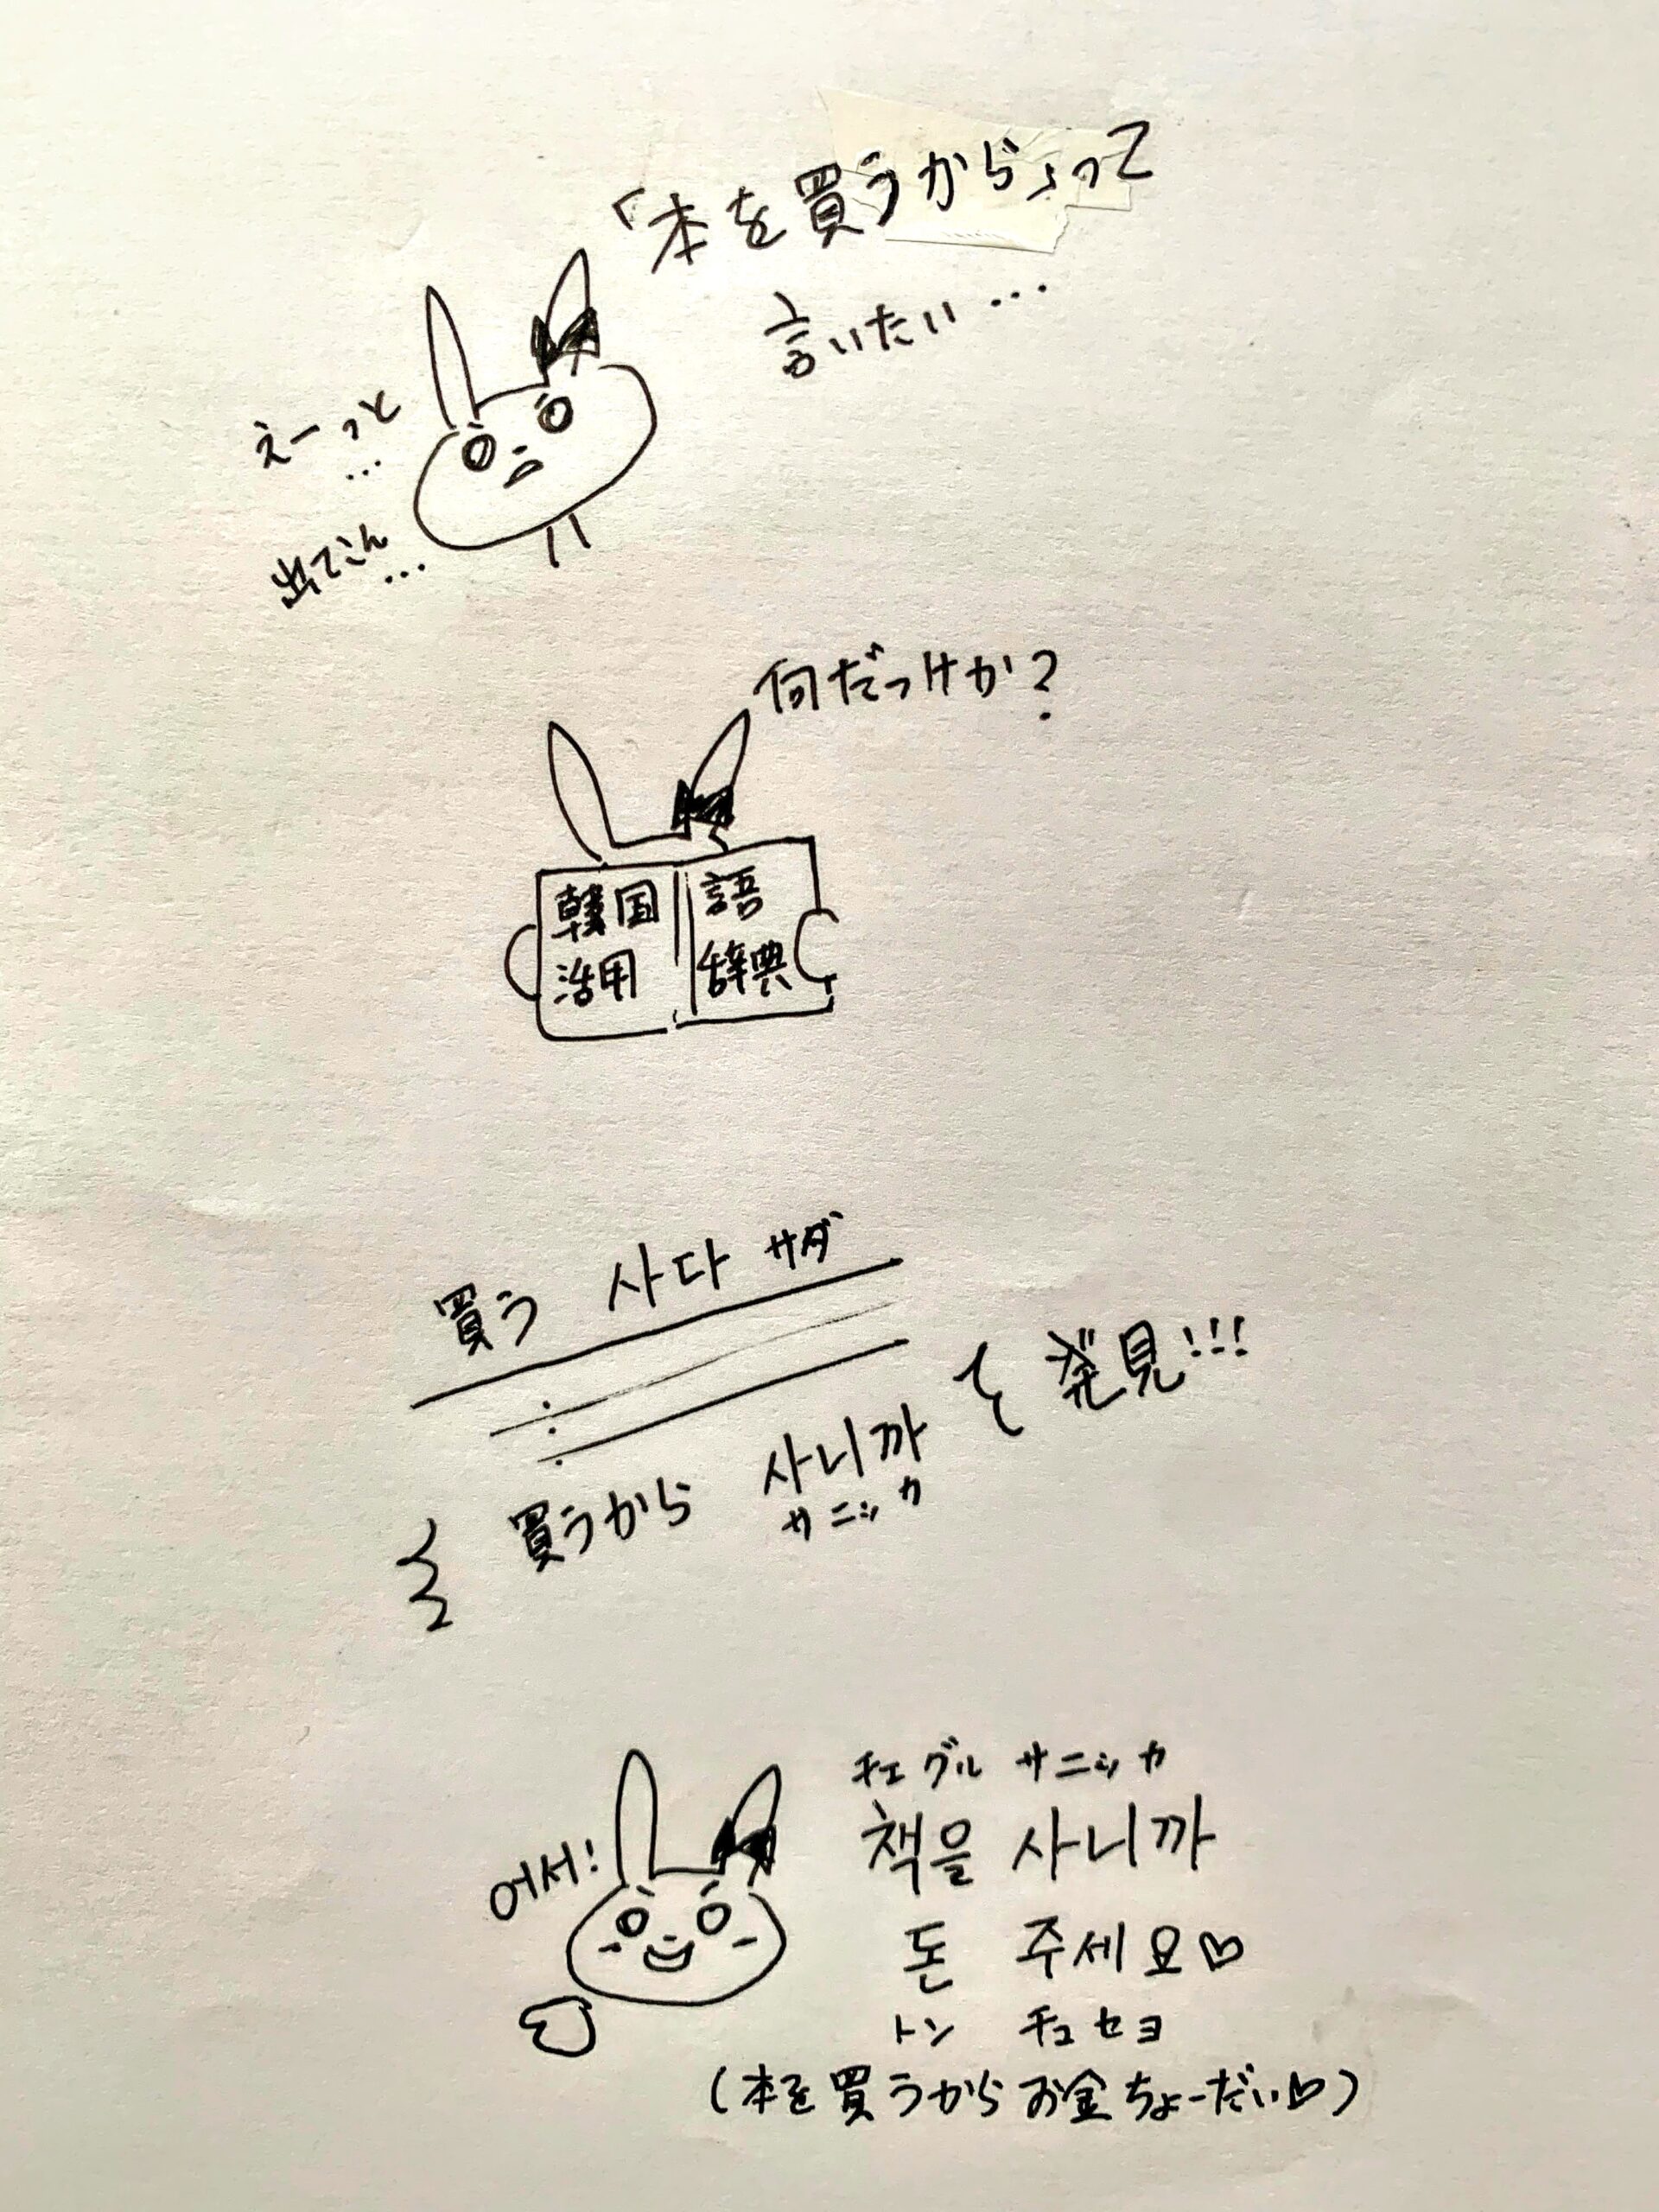 「本を買うから」って
言いたい…
えーっと
…
出てこん
…
何だっけか?
韓国語
活用辞典
買う 사다 サダ
買うから 사니까 を発見!!!
サニッカ
チェグル サニッカ
책을 사니까
어서!
돈 주세요♡
トン チュセヨ
(本を買うからお金ちょーだい♡)